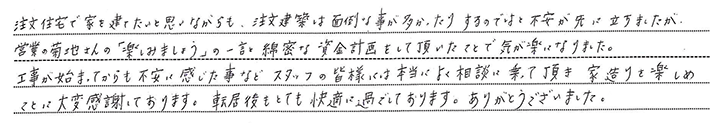 注文住宅で家を建てたいと思いながらも、注文建築は面倒な事が多かったりするのではと不安が先に立ちましたが、
営業の菊地さんの「楽しみましょう」の一言と綿密な資金計画をして頂いたことで気が楽になりました。
工事が始まってからも不安に感じた事など スタッフの皆様には本当によく相談に乗って頂き 家造りを楽しめ
たことに大変感謝しております。転居後もとても快適に過ごしております。ありがとうございました。